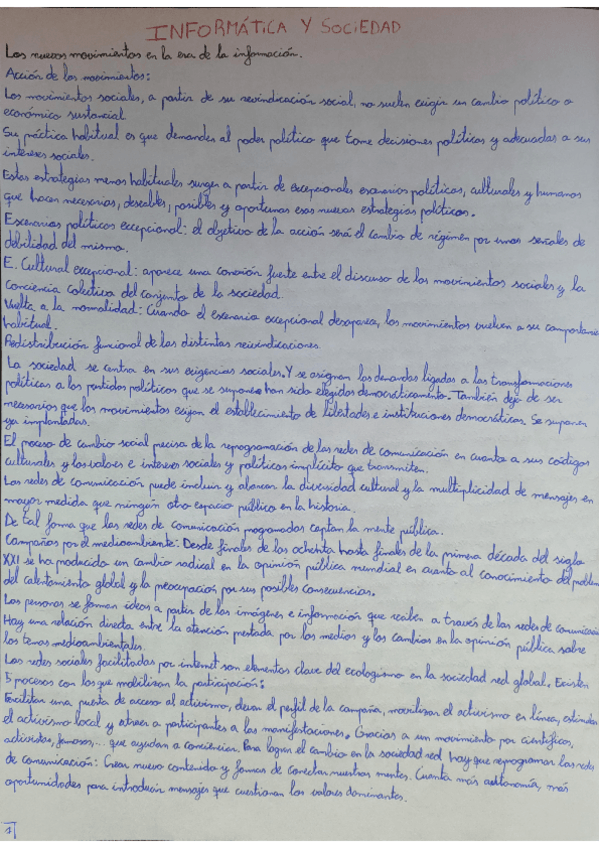 INFORMÁTICA Y SOCIEDAD
Los nuevos movimientos en la era de la información.
Acción de los movimientos:
Los movimientos sociales, a partir de su reivindicación social, no suelen exigir un cambio político o
económico sustancial
Su práctica habitual es que demandes al poder político que tome decisiones políticas y adecuadas a sus
intereses sociales.
Estas estrategias menos habituales surgen a partir de excepcionales escenarios políticos, culturales y humanos
que hacen necesarias, deseables, posibles y oportunas esas nuevas estrategias políticas.
Escenarios políticos excepcional: el objetivo de la acción será el cambio de régimen por unas señales de
debilidad del mismo.
E. Cultural excepcional: aparece una conexión fuente entre el discurso de los movimientos sociales y la
Conciencia Colectiva del conjunto de la sociedad.
Vuelta a la normalidad: Cuando el escenario excepcional desaparea, los movimientos vuelven a su comportamie
habitual.
Redistribución funcional de las distintas reivindicaciones
La sociedad se centra en sus exigencias sociales. Y se asignan las demandas ligadas a las transformaciones
políticas a los partidos políticos que se supone han sido elegidos democráticamente. También deja de ser
necesarios que los movimientos exijan el establecimiento de libertades e instituciones democráticas. Se suponen
ya implantadas.
El proceso de cambio social precisa de la reprogramación de las redes de comunicación en cuanto a sus códigos
culturales y los valores e intereses sociales y políticos implícito que transmiten.
Las redes de comunicación puede incluir y abarcar la diversidad cultural y la multiplicidad de mensajes en
mayor medida que ningún otro espacio público en la historia.
De tal forma que las redes de comunicación programadas captan la mente pública.
Campañas por el medioambiente: Desde finales de los ochenta hasta finales de la primera década del siglo
XXI se ha producido un cambio radical en la opinión pública mundial en cuanto al conocimiento del problema
del calentamiento global y la preocupación por sus posibles consecuencias.
Las personas se forman ideas a partir de las imágenes e información que reciben a través de las redes de comunicación
Hay una relación directa entre la atención prestada por los medios y los cambios en la opinión pública sobre
los temas medioambientales.
Las redes sociales facilitadas por internet son elementos clave del ecologismo en la sociedad red global. Existen
5 procesos con los que mobilizan la participación:
Facilitan una puerta de acceso al activismo, elevan el perfil de la campaña, movilizan el activismo en línea, estimulan
el activismo local y atraen a participantes a las manifestaciones. Gracias a un movimiento por científicos,
activistas, famosos,... que ayudan a concienciar. Para lograr el cambio en la sociedad red hay que reprogramar las redes
de comunicación: Crear nuevo contenido y formas de conectar nuestras mentes. Cuanta más autonomía, más
oportunidades para introducir mensajes que cuestionan los valores dominantes.
1